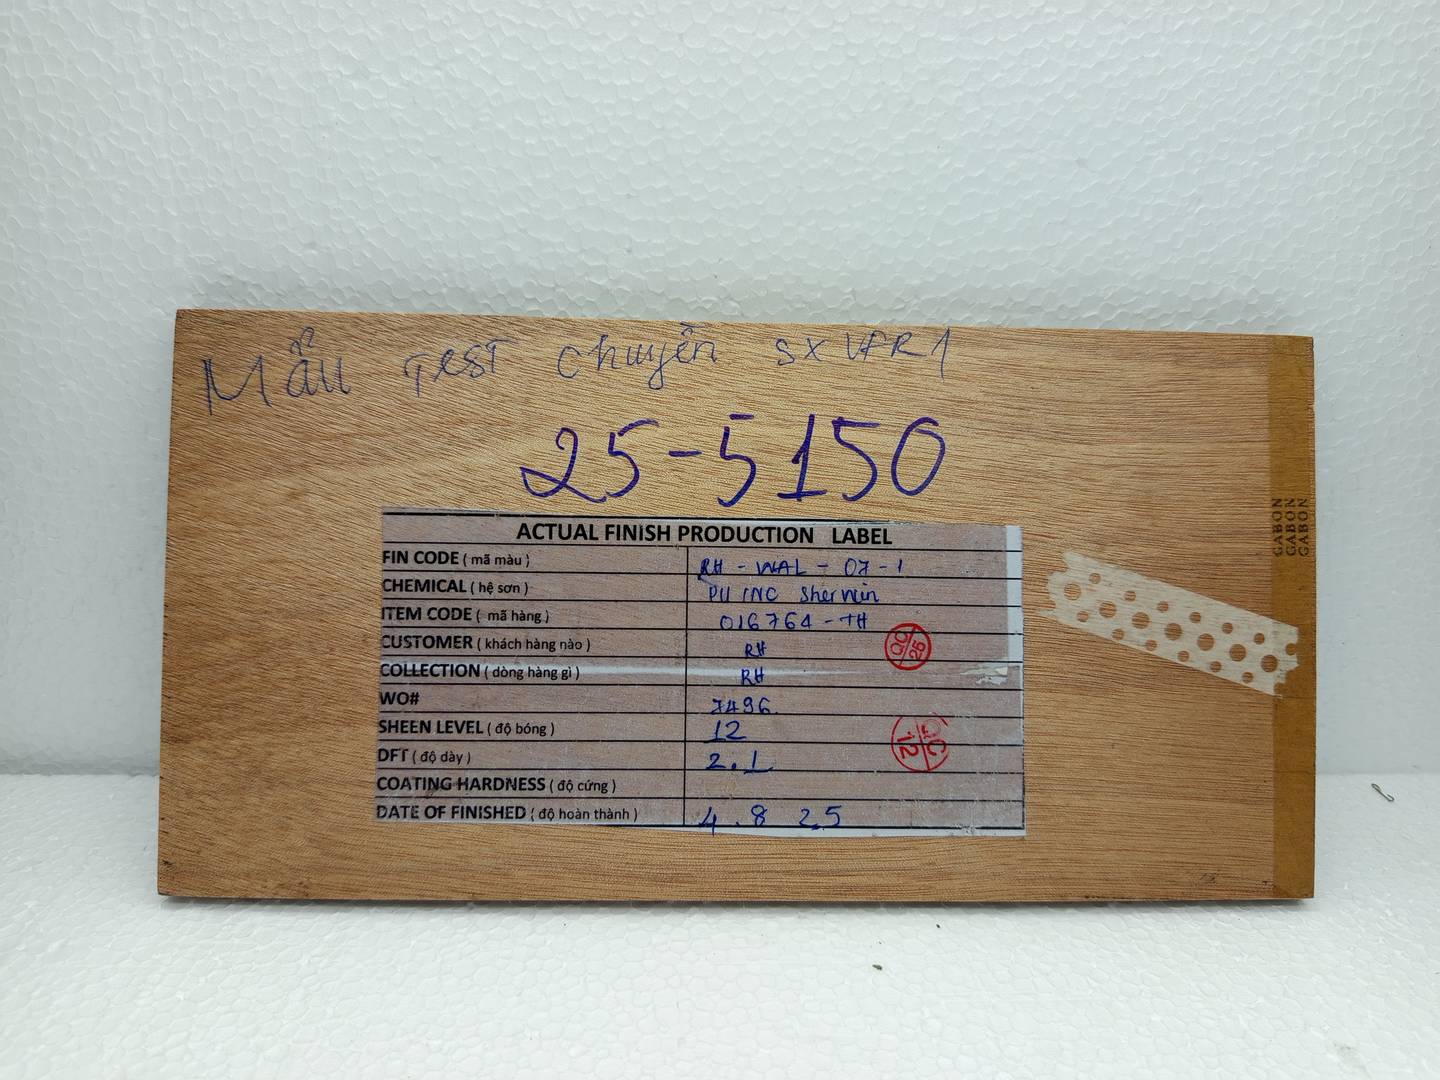 Mẫu Test chuyền SX VFR1
25-5150
ACTUAL FINISH PRODUCTION LABEL
FIN CODE ( mã màu ) RH - WAL - 07 - 1
CHEMICAL ( hệ sơn ) PU INC Sherwin
ITEM CODE ( mã hàng ) 016764 - TH
CUSTOMER ( khách hàng nào ) RH
COLLECTION ( dòng hàng gì ) RH
WO# 7496
SHEEN LEVEL ( độ bóng ) 12
DFT ( độ dày ) 2.1
COATING HARDNESS ( độ cứng )
DATE OF FINISHED ( độ hoàn thành ) 4 . 8 25
QC 25
QC 12
GABON
GABON
GABON